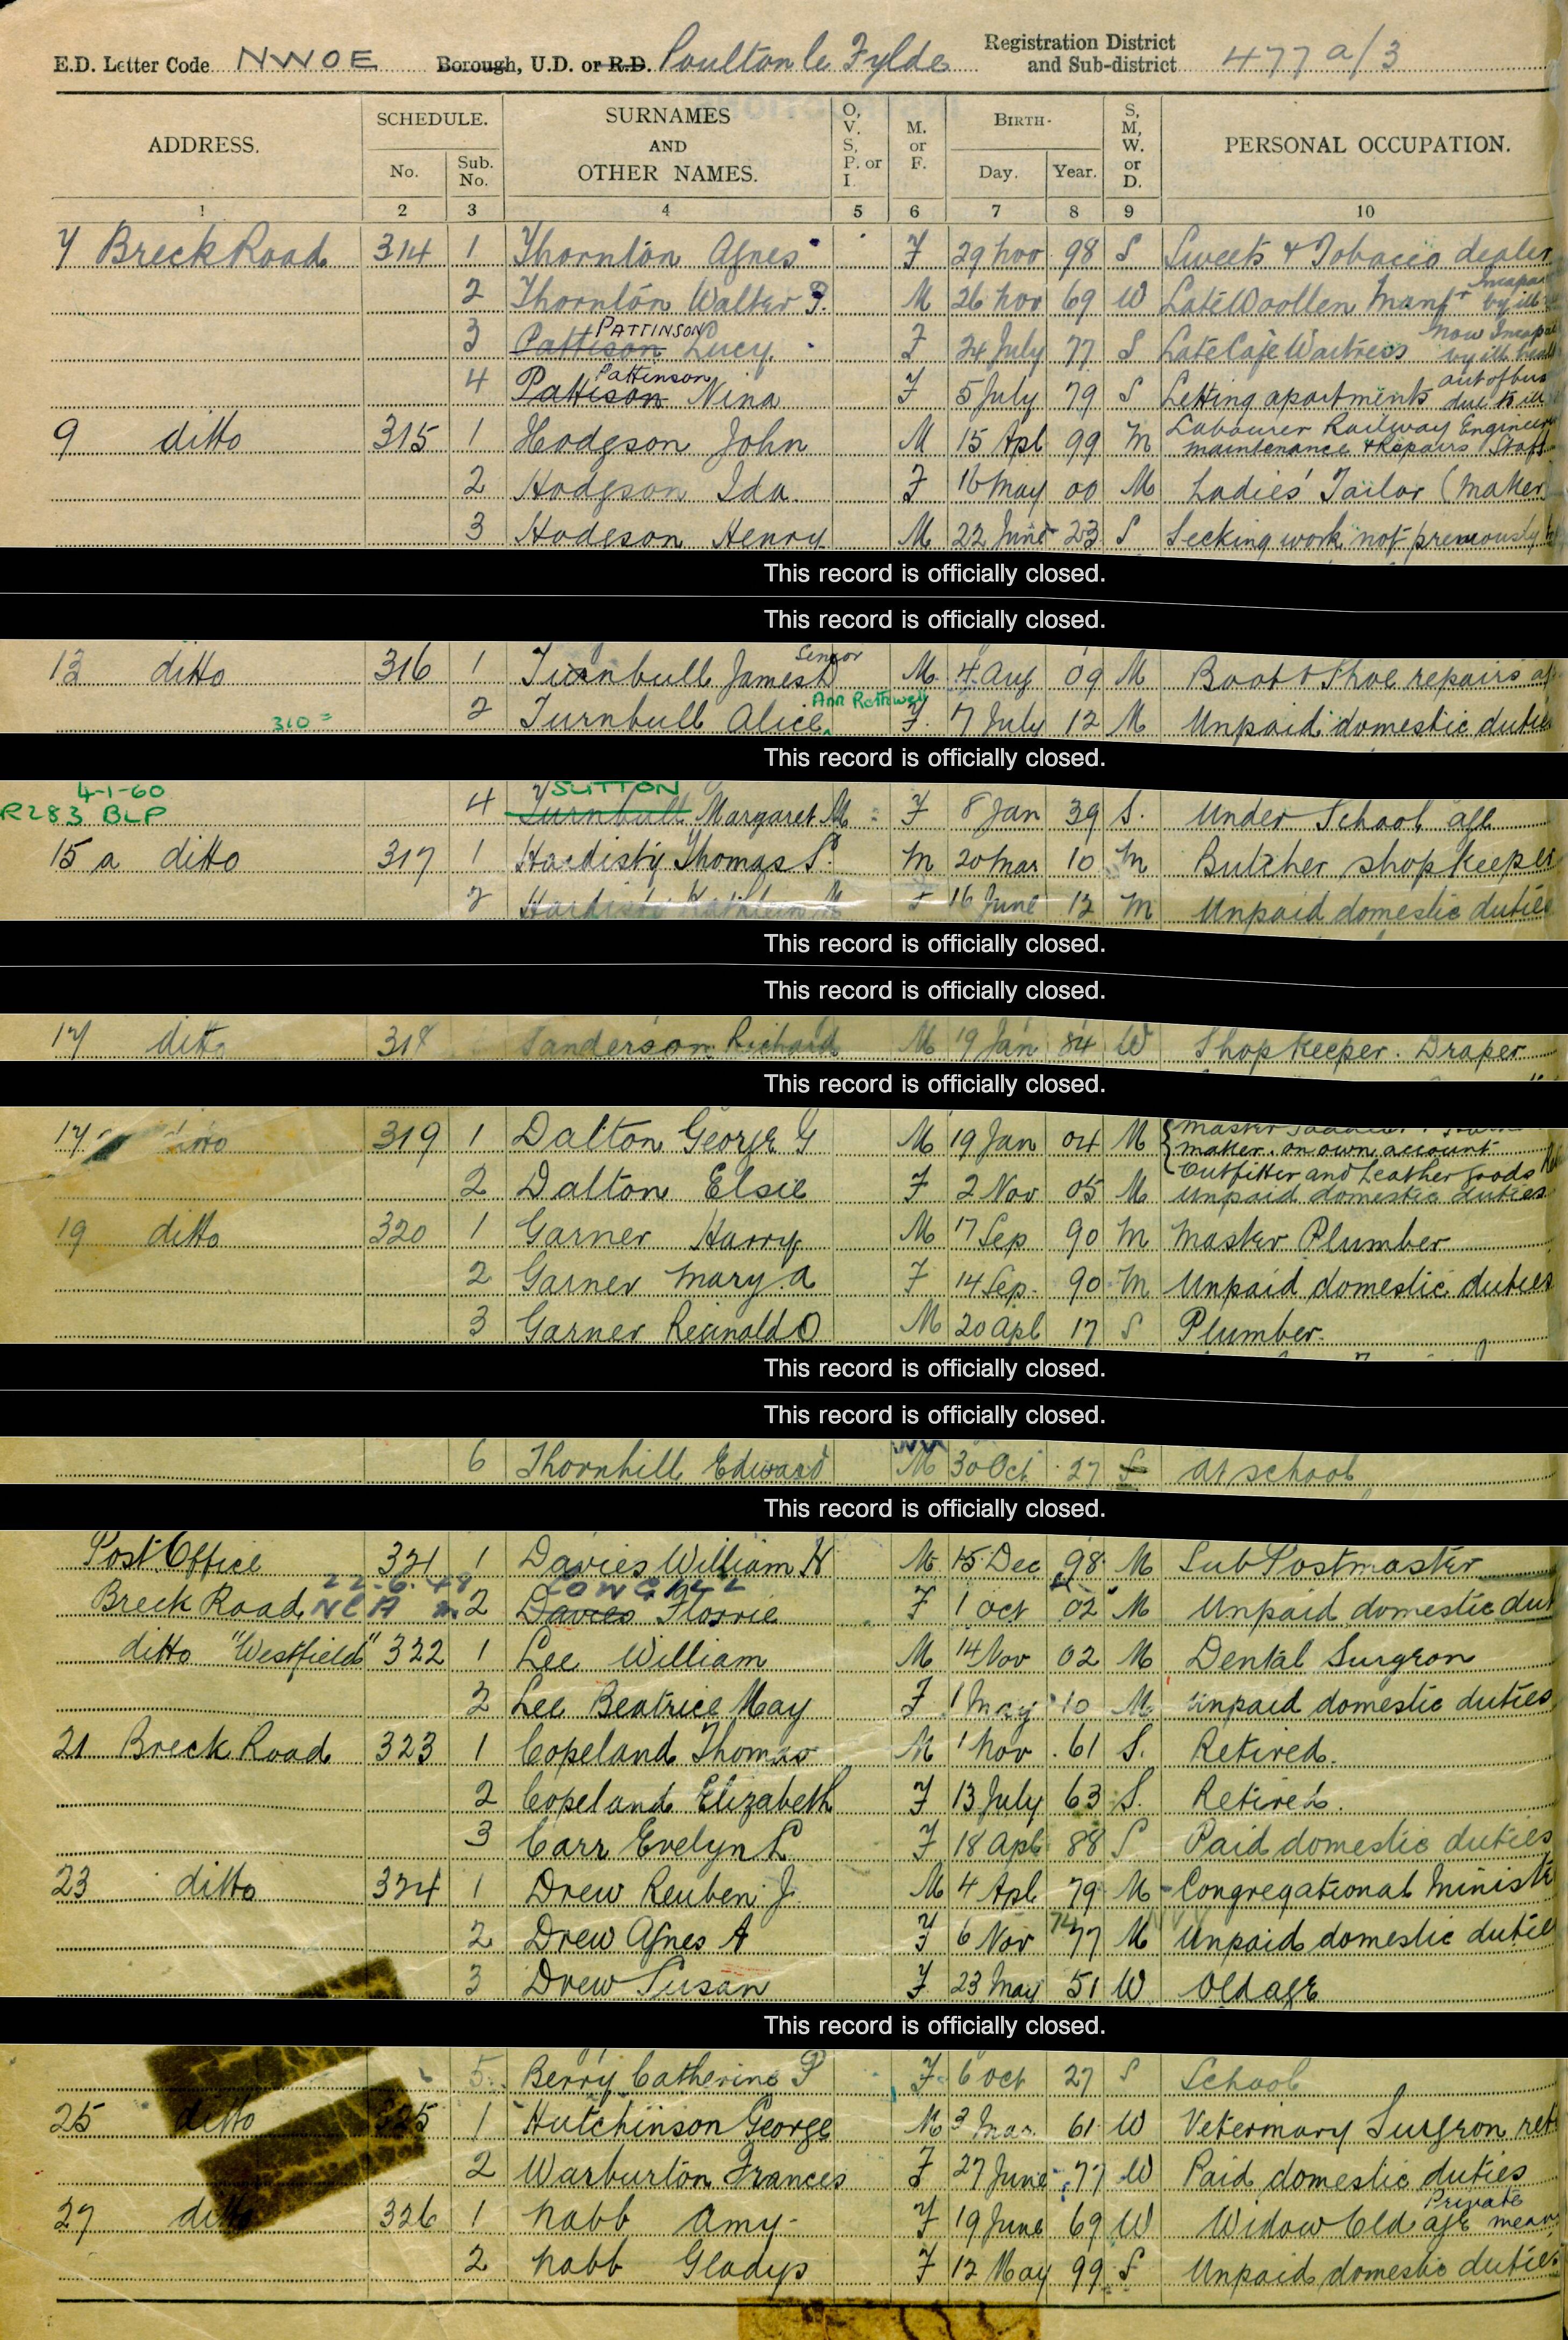 E.D. Letter Code NWOE Borough, U.D. or R.D. Poulton le Fylde Registration District and Sub-district 477 a/3
ADDRESS. SCHEDULE. No. Sub. No. SURNAMES AND OTHER NAMES. O, V. S, P. or I. M. or F. BIRTH- Day. Year. S, M, W. or D. PERSONAL OCCUPATION.
1 2 3 4 5 6 7 8 9 10
7 Breck Road 314 1 Thornton Agnes F 29 Nov 98 S Sweets & Tobacco dealer
2 Thornton Walter P. M 26 Nov 69 W Late Woollen Manfr Incapac by ill
3 Pattison PATTINSON Lucy F 24 July 77 S Late Cafe Waitress now Incapac by ill heal
4 Pattison Pattinson Nina F 5 July 79 S Letting apartments out of bus due to ill
9 ditto 315 1 Hodgson John M 15 Apl 99 M Labourer Railway Engineer maintenance & Repairs Staff
2 Hodgson Ida F 16 May 00 M Ladies' Tailor (Maker)
3 Hodgson Henry M 22 June 23 S Seeking work not previously
This record is officially closed.
This record is officially closed.
13 ditto 316 1 Turnbull James Senior M 4 Aug 09 M Boot & Shoe repairs
310 = 2 Turnbull Alice Ann F 7 July 12 M Unpaid domestic duties
This record is officially closed.
4-1-60
R283 BLP 4 Turnbull SUTTON Margaret M F 8 Jan 39 S. Under School age
15 a ditto 317 1 Hardisty Thomas S. M 20 Mar 10 M Butcher shopkeeper
2 Hardisty Kathleen M F 16 June 12 M Unpaid domestic duties
This record is officially closed.
This record is officially closed.
17 ditto 318 Sanderson Richard M 19 Jan 84 W Shopkeeper. Draper
This record is officially closed.
17 ditto 319 1 Dalton George G M 19 Jan 04 M Master maker. on own account Outfitter and Leather Goods
2 Dalton Elsie F 2 Nov 05 M Unpaid domestic duties
19 ditto 320 1 Garner Harry M 17 Sep 90 M Master Plumber
2 Garner Mary A F 14 Sep. 90 M Unpaid domestic duties
3 Garner Reginald O M 20 Apl 17 S Plumber
This record is officially closed.
This record is officially closed.
6 Thornhill Edward M 30 Oct 27 S At school
This record is officially closed.
Post Office 321 1 Davies William H M 15 Dec 98 M Sub Postmaster
Breck Road 22.6.48 NCA 2 Davies Florrie F 1 Oct 02 M Unpaid domestic dut
ditto "Westfield" 322 1 Lee William M 14 Nov 02 M Dental Surgeon
2 Lee Beatrice May F 1 May 10 M Unpaid domestic duties
21 Breck Road 323 1 Copeland Thomas M 1 Nov 61 S. Retired.
2 Copeland Elizabeth F 13 July 63 S. Retired.
3 Carr Evelyn L F 18 Apl 88 S Paid domestic duties
23 ditto 324 1 Drew Reuben J. M 4 Apl 79 M Congregational Ministe
2 Drew Agnes A F 6 Nov 74 77 M Unpaid domestic duties
3 Drew Susan F 23 May 51 W Old age
This record is officially closed.
5 Berry Catherine P F 6 Oct 27 S School
25 ditto 325 1 Hutchinson George M 3 Mar 61 W Veterinary Surgeon ret
2 Warburton Frances F 27 June 77 W Paid domestic duties
27 ditto 326 1 Nabb Amy F 19 June 69 W Widow Old age Private mean
2 Nabb Gladys F 12 May 99 S Unpaid domestic duties